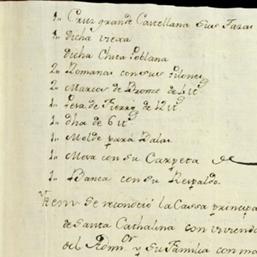 1.. Cruz grande Castellana sus Tazas
1.. dicha vieja
dicha Chica Poblana
2.. Romanas con sus Pilones
2.. Marcos de Bronce de
1.. Pesa de Fierro de
1.. dha de 6
1.. Molde para Balas
1.. Mesa con su Carpeta
1.. Banca con su Respaldo
Ytem se reconoció la Cassa principal
de Santa Cathalina con vivienda
del Admor y su Familia con